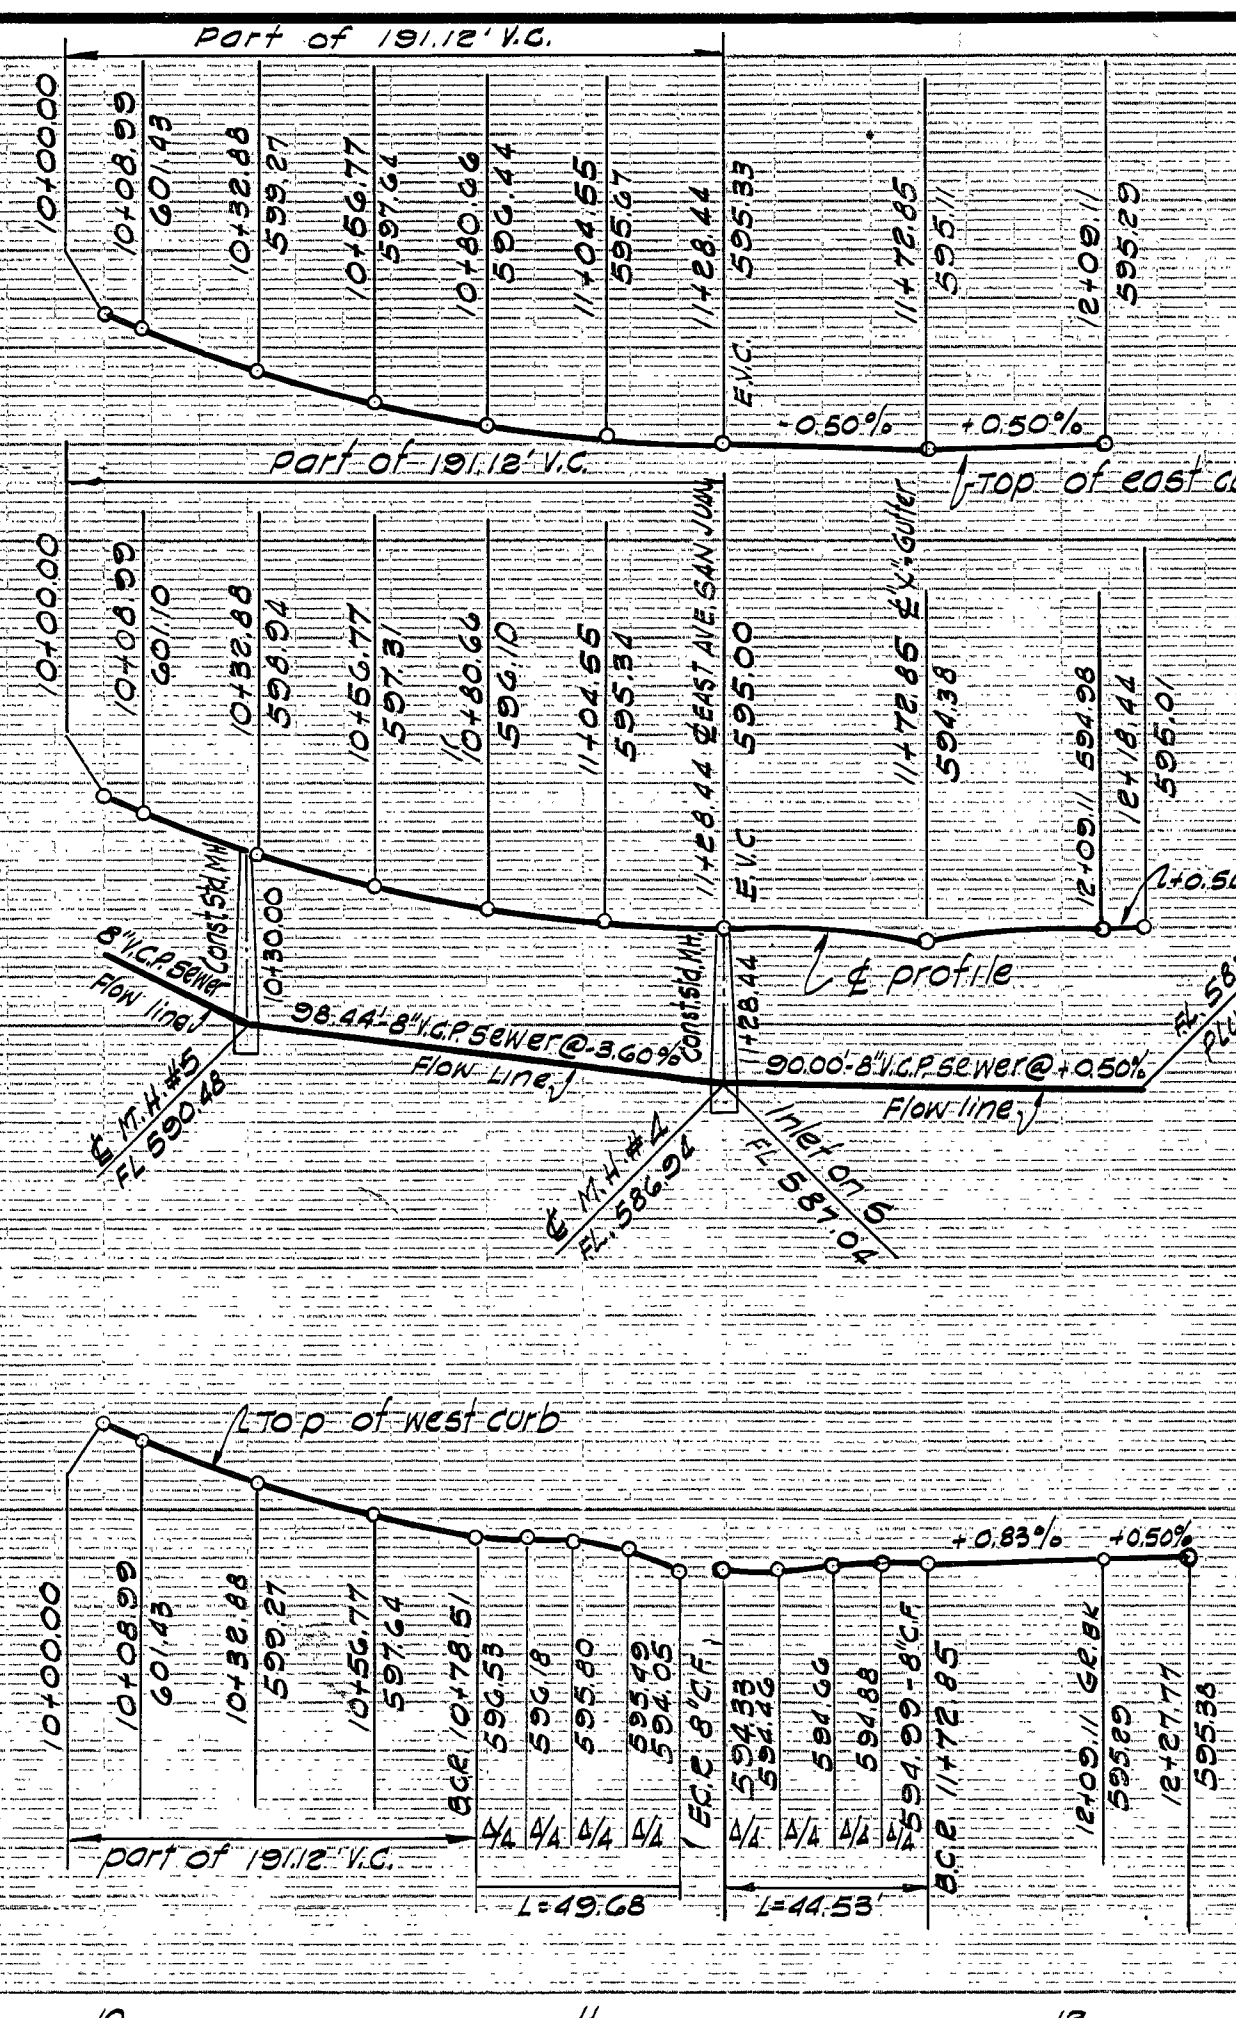 part of 191.12' V.C.
10+00.00
10+08.99
601.43
10+32.88
599.27
10+56.77
597.64
10+80.66
596.44
11+04.55
595.67
11+28.44
595.33
E.V.C.
11+72.85
595.11
12+09.11
595.29
-0.50%
+0.50%
Top of east
part of 191.12' V.C.
10+00.00
10+08.99
601.10
10+32.88
598.94
10+56.77
597.31
10+80.66
596.10
11+04.55
595.34
11+28.44 ℄ EAST AVE. SAN JUAN
595.00
E.V.C
11+72.85 ℄ "V" Gutter
594.38
12+09.11 594.98
12+18.44
595.01
℄ profile
Const. Std. M.H.
10+30.00
8" V.C.P. Sewer
Flow line
98.44'-8" V.C.P. Sewer @ -3.60%
Flow Line
Const. Std. M.H.
11+28.44
90.00'-8" V.C.P. Sewer @ +0.50%
Flow line
℄ M.H. #5
FL 590.48
℄ M.H. #4
FL. 586.94
Inlet on S
FL 587.04
Top of west curb
10+00.00
10+08.99
601.43
10+32.88
599.27
10+56.77
597.64
B.C.R. 10+78.51
596.53
596.18
595.80
595.49
594.05
E.C.R. 8" C.F.
594.33
594.46
594.66
594.88
594.99-8" C.F.
B.C.R. 11+72.85
+0.83%
+0.50%
12+09.11 GR. BK
595.29
12+27.77
595.38
Δ/4 Δ/4 Δ/4 Δ/4
Δ/4 Δ/4 Δ/4 Δ/4
part of 191.12' V.C.
L=49.68
L=44.53'
11